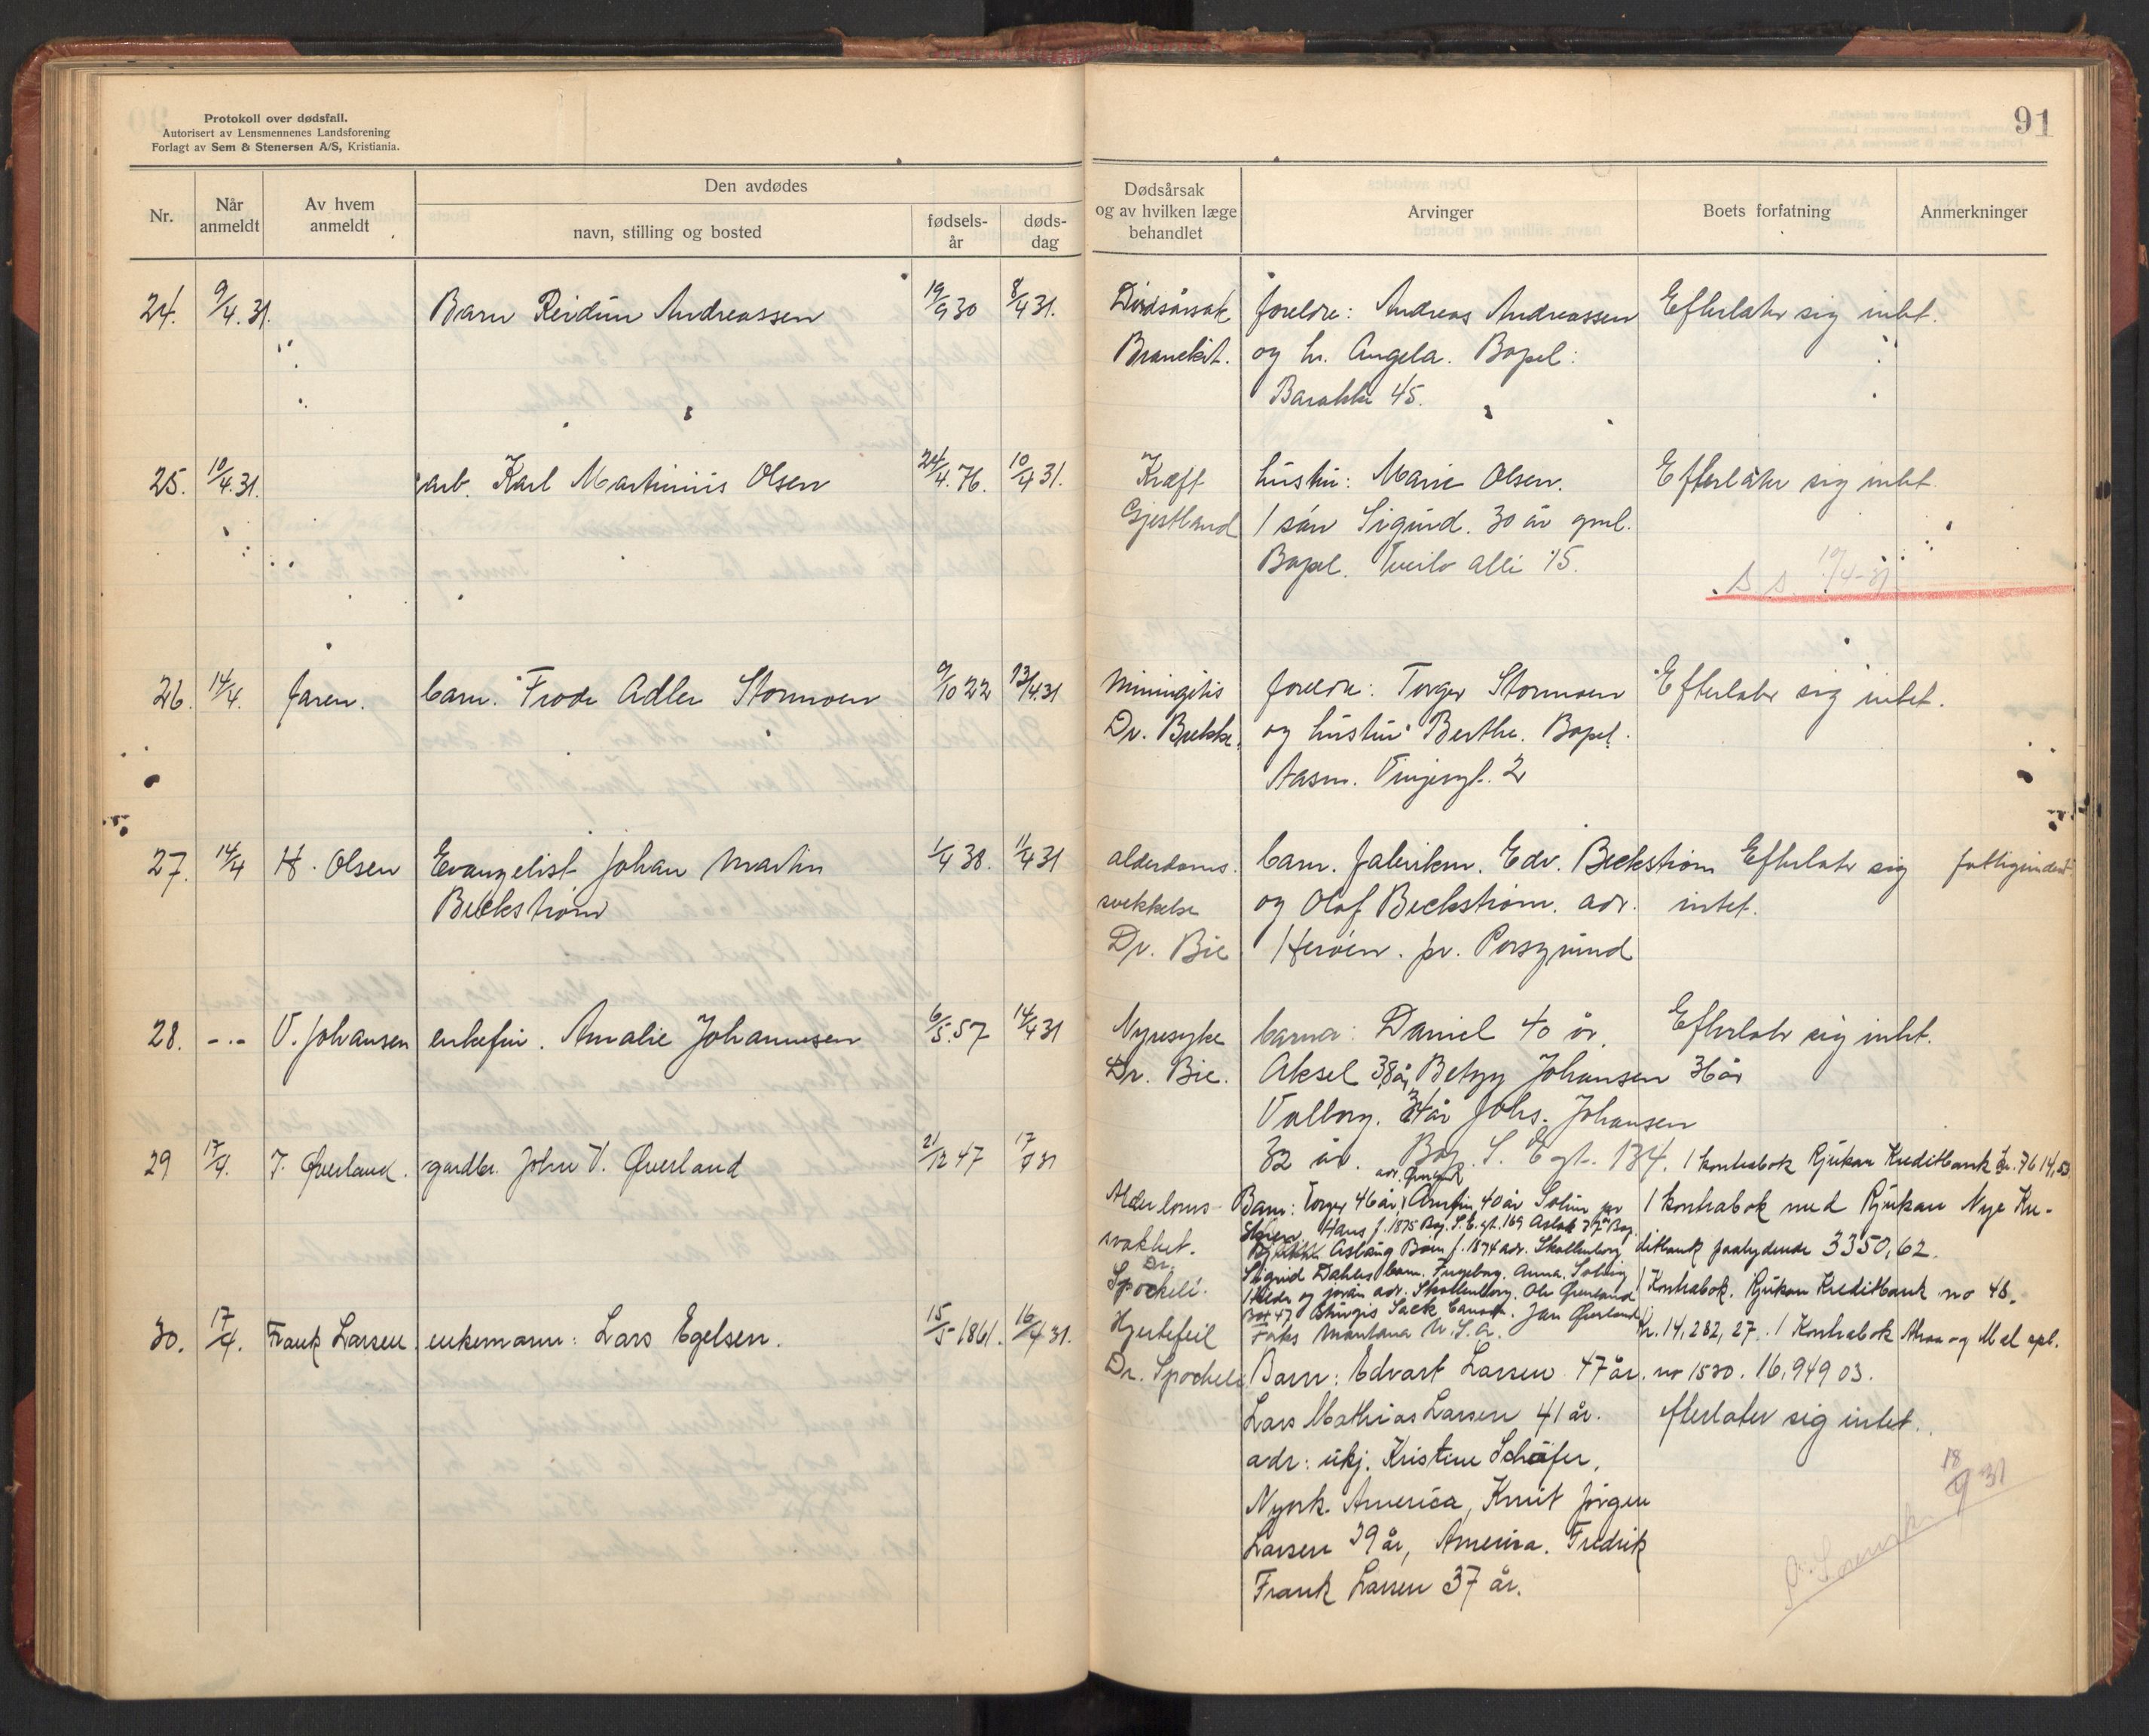 Protokoll over dødsfall.
Autorisert av Lensmennenes Landsforening
Forlagt av Sem & Stenersen A/S, Kristiania.
91
Nr.
Når anmeldt
Av hvem anmeldt
Den avdødes
navn, stilling og bosted
fødsels-år
døds-dag
Dødsårsak og av hvilken læge behandlet
Arvinger
Boets forfatning
Anmerkninger
24. 9/4.31. Barn Reidun Andreassen 19/9 30 8/4 31. Dødsårsak foreldre: Andreas Andreassen Efterlater sig intet.
og hr. Angela. Bopel:
Barakke 45.
25. 10/4.31. arb. Karl Martinius Olsen 24/4.76. 10/4 31. Kræft hustru: Marie Olsen. Efterlater sig intet.
Gjestland 1 søn Sigurd. 30 år gml.
Bopel. Tveito alle 15.
10/4-31
26. 14/4. Jaren. barn. Frode Adler Stormoen 9/10 22 13/4 31 Miningitis foreldre: Torger Stormoen Efterlater sig intet.
Dr. Brekke. og hustru Berthe. Bopel.
Aasm. Vinjesgt. 2
27. 14/4 H. Olsen Evangelist Johan Martin 1/4 38. 11/4 31 alderdoms- barn. fabrikm. Edv. Beckstrøm Efterlater sig
Beckstrøm svekkelse og Olaf Beckstrøm. adr. intet.
Dr. Bie Herøen. pr. Porsgrund
28. -.- V. Johansen enkefru. Amalie Johannesen 6/5.57 14/4 31 Nyresyke barna: Daniel 40 år. Efterlater sig intet.
Dr. Bie. Aksel 38 år, Betzy Johansen 36 år
Valborg. 34 år Johs. Johansen
32 år. Bop. S. E gt. 134.
1 kontrabok Rjukan Kreditbank kr. 7614,53
29 17/4. T. Øverland. gardbr. John V. Øverland 21/12 47 17/4 31
Alderdoms- Barn: Torger 46 år, Arnfin 40 år 1 kontrabok med Rjukan Nye Kre-
svakhet. Hans f. 1875 Bop. S. E. gt. 169 Aslak
Aslaug Bøen f. 1874 adr. Skollenborg ditbank paalydende 3350,62.
Dr. Spockeli. Sigrid Dahles barn. Ingeborg. Anna. Solveig
adr. Skollenborg. Ole Øverland 1 Kontrabok. Rjukan Kreditbank no 48.
Box 47 Sack Canada. Jan Øverland kr. 14,282,27. 1 Kontrabok Atraa og Mæl spb.
Montana U.S.A.
30. 17/4. Frank Larsen enkemann: Lars Egelsen. 15/5-1861. 16/4 31. Hjertefeil
Dr. Spockeli. Barn: Edvart Larsen 47 år. no 1530. 16.949 03.
Lars Mathias Larsen 41 år. efterlater sig intet.
adr: ukj. Kristine Schäfer,
Nyork. America, Knut Jørgen
Larsen 39 år, America. Fredrik
Frank Larsen 37 år.